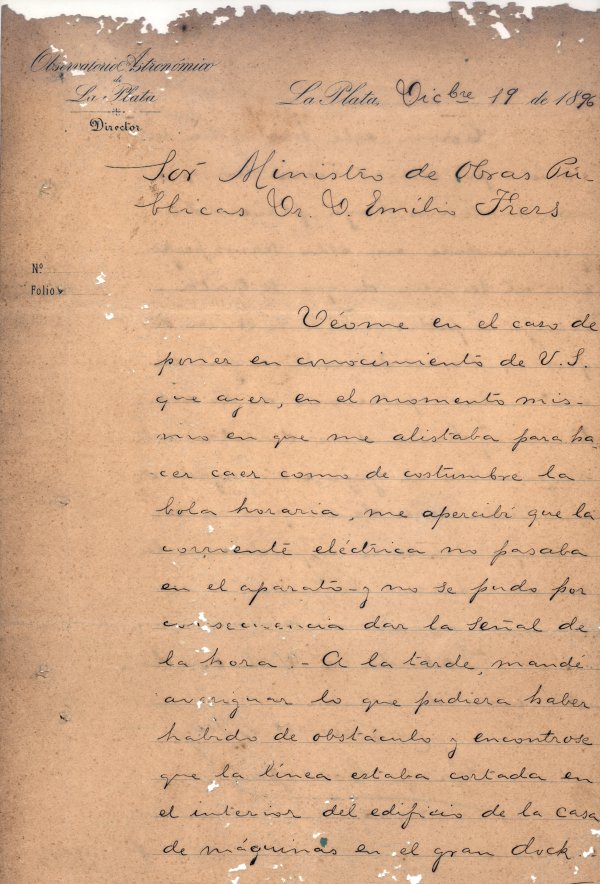 Observatorio Astronómico
de
La Plata
Director
La Plata, Dicbre 19 de 1896
Sor Ministro de Obras Pú-
blicas Dr. D. Emilio Frers
Nº
Folio
Véome en el caso de
poner en conocimiento de V. S.
que ayer, en el momento mis-
mo en que me alistaba para ha-
cer caer como de costumbre la
bola horaria, me apercibí que la
corriente eléctrica no pasaba
en el aparato y no se pudo por
consecuencia dar la señal de
la hora - A la tarde, mandé
averiguar lo que pudiera haber
habido de obstáculo y encontrose
que la línea estaba cortada en
el interior del edificio de la casa
de máquinas en el gran dock.